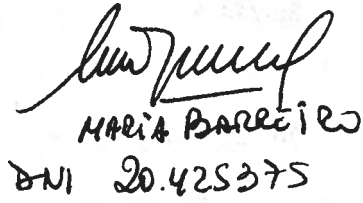 MARIA BARREIRO
DNI 20.425375